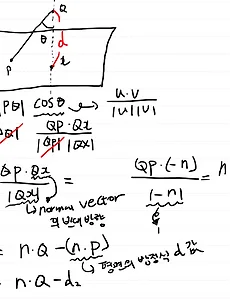 Q
θ
d
P
x
|PQ| cosθ → u·v / |u||v|
QP · Qx / |QP| |Qx|
QP · Qx / |Qx| = QP · (-n) / |-n| = n
normal vector
의 반대 방향
1
= n·Q - (n·P)
평면의 방정식 d값
= n·Q - d₂